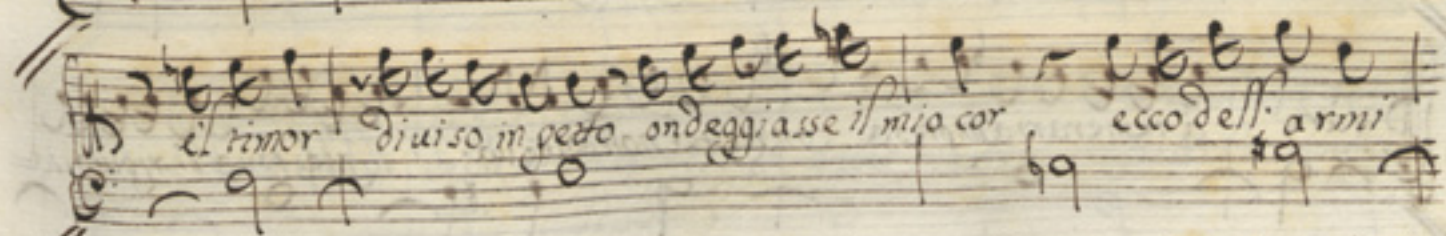 e'l timor diuiso in petto ondeggiasse il mio cor ecco dell' armi